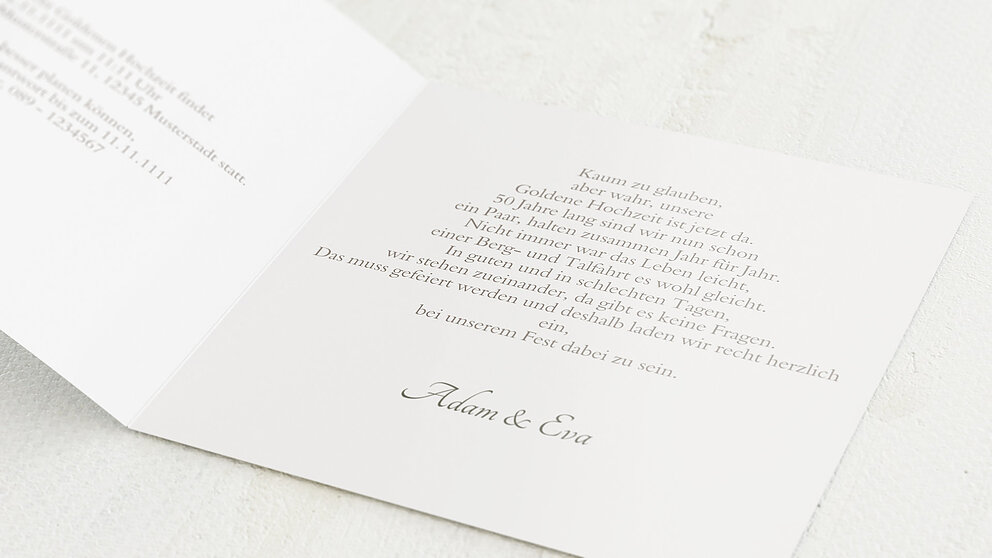 Goldenen Hochzeit findet
11.1111 um 11.11 Uhr
11, 12345 Musterstadt statt.
besser planen können,
bis zum 11.11.1111
089 - 1234567
Kaum zu glauben,
aber wahr, unsere
Goldene Hochzeit ist jetzt da.
50 Jahre lang sind wir nun schon
ein Paar, halten zusammen Jahr für Jahr.
Nicht immer war das Leben leicht,
einer Berg- und Talfahrt es wohl gleicht.
In guten und in schlechten Tagen,
wir stehen zueinander, da gibt es keine Fragen.
Das muss gefeiert werden und deshalb laden wir recht herzlich
ein,
bei unserem Fest dabei zu sein.
Adam & Eva